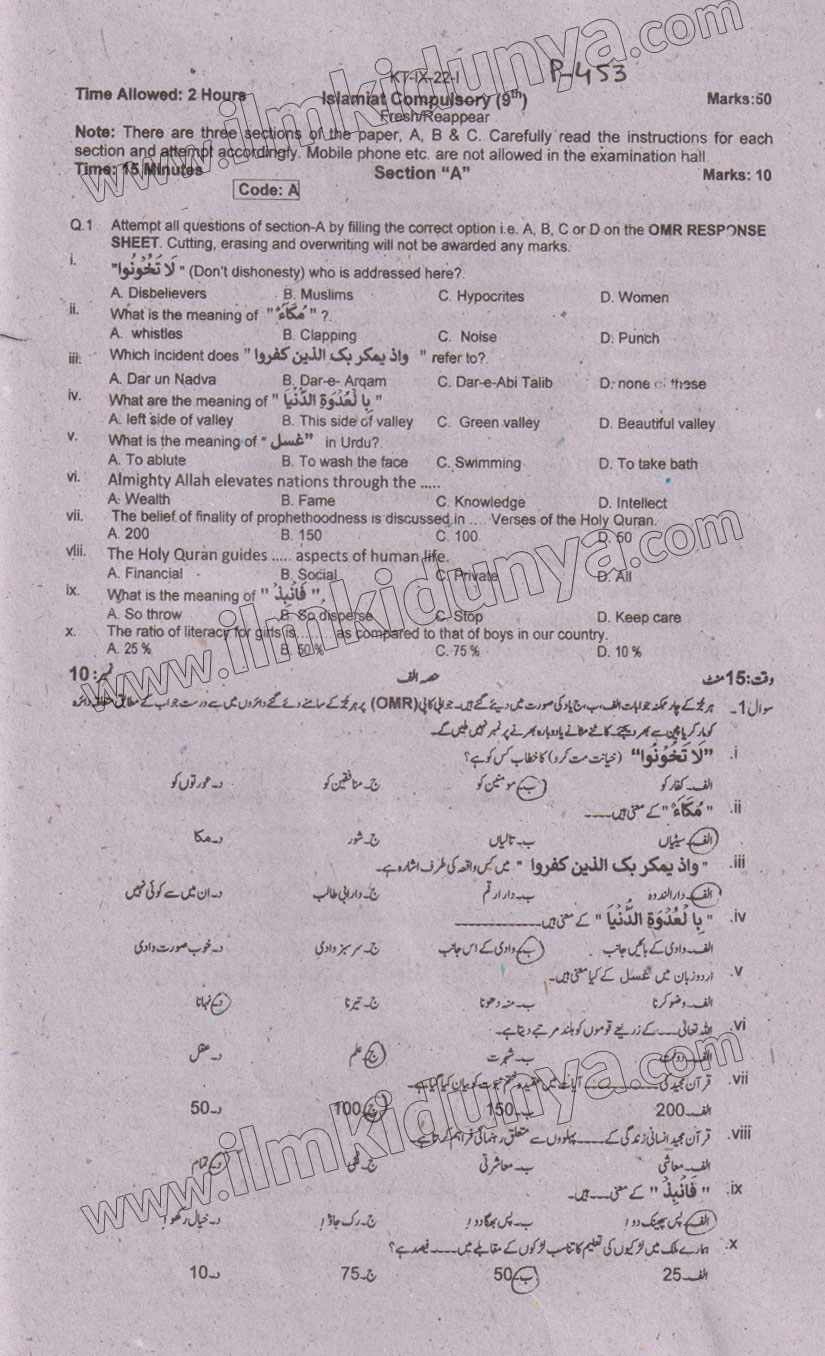 KT-IX-22-I P-453
Time Allowed: 2 Hours Islamiat Compulsory (9th) Marks:50
Fresh/Reappear
Note: There are three sections of the paper, A, B & C. Carefully read the instructions for each
section and attempt accordingly. Mobile phone etc. are not allowed in the examination hall.
Time: 15 Minutes Section "A" Marks: 10
Code: A
Q.1 Attempt all questions of section-A by filling the correct option i.e. A, B, C or D on the OMR RESPONSE
SHEET. Cutting, erasing and overwriting will not be awarded any marks.
i. "لَا تَخُوْنُوا" (Don't dishonesty) who is addressed here?.
A. Disbelievers B. Muslims C. Hypocrites D. Women
ii. What is the meaning of "مُكَآءً" ?.
A. whistles B. Clapping C. Noise D. Punch
iii. Which incident does "واذ يمكر بک الذين كفروا" refer to?.
A. Dar un Nadva B. Dar-e- Arqam C. Dar-e-Abi Talib D. none of these
iv. What are the meaning of "بِا لْعُدْوَةِ الدُّنْيَا"
A. left side of valley B. This side of valley C. Green valley D. Beautiful valley
v. What is the meaning of "غسل" in Urdu?.
A. To ablute B. To wash the face C. Swimming D. To take bath
vi. Almighty Allah elevates nations through the .....
A. Wealth B. Fame C. Knowledge D. Intellect
vii. The belief of finality of prophethoodness is discussed in .... Verses of the Holy Quran.
A. 200 B. 150 C. 100 D. 50
viii. The Holy Quran guides ..... aspects of human life.
A. Financial B. Social C. Private D. All
ix. What is the meaning of "فَانْبِذْ".
A. So throw B. So disperse C. Stop D. Keep care
x. The ratio of literacy for girls is........ as compared to that of boys in our country.
A. 25 % B. 50 % C. 75 % D. 10 %
وقت:15منٹ حصہ الف نمبر:10
سوال1۔ ہر جز کے چار ممکنہ جوابات الف، ب، ج یا د کی صورت میں دیئے گئے ہیں۔ جوابی کاپی(OMR) پر ہر جز کے سامنے دئے گئے دائروں میں سے درست جواب کے مطابق متعلقہ دائرہ
کو مارکر یا پین سے بھر دیجئے۔ کاٹنے مٹانے یا دوبارہ بھرنے پر نمبر نہیں ملیں گے۔
i. "لَا تَخُوْنُوا" (خیانت مت کرو) کا خطاب کس کو ہے؟
الف۔کفار کو ب۔مومنین کو ج۔منافقین کو د۔عورتوں کو
ii. "مُكَآءً" کے معنی ہیں۔۔۔۔
الف۔سیٹیاں ب۔تالیاں ج۔شور د۔مکا
iii. "واذ يمكر بک الذين كفروا" میں کس واقعہ کی طرف اشارہ ہے۔
الف۔دارالندوہ ب۔دارارقم ج۔دارابی طالب د۔ان میں سے کوئی نہیں
iv. "بِا لْعُدْوَةِ الدُّنْيَا" کے معنی ہیں۔
الف۔وادی کے بائیں جانب ب۔وادی کے اس جانب ج۔سرسبز وادی د۔خوب صورت وادی
v. اردو زبان میں غسل کے کیا معنی ہیں۔
الف۔وضو کرنا ب۔منہ دھونا ج۔تیرنا د۔نہانا
vi. اللہ تعالیٰ۔۔۔۔کے ذریعے قوموں کو بلند مرتبے دیتا ہے۔
الف۔دولت ب۔شہرت ج۔علم د۔عقل
vii. قرآن مجید کی ________ آیات میں عقیدہ ختم نبوت کو بیان کیا گیا ہے۔
الف۔200 ب۔150 ج۔100 د۔50
viii. قرآن مجید انسانی زندگی کے۔۔۔۔پہلوؤں سے متعلق رہنمائی فراہم کرتا ہے۔
الف۔معاشی ب۔معاشرتی ج۔نجی د۔تمام
ix. "فَانْبِذْ" کے معنی۔۔۔۔ہیں۔
الف۔پس پھینک دو! ب۔پس بھگا دو! ج۔رک جاؤ! د۔خیال رکھو!
x. ہمارے ملک میں لڑکیوں کی تعلیم کا تناسب لڑکوں کے مقابلے میں۔۔۔۔فیصد ہے؟
الف۔25 ب۔50 ج۔75 د۔10
www.ilmkidunya.com
www.ilmkidunya.com
www.ilmkidunya.com